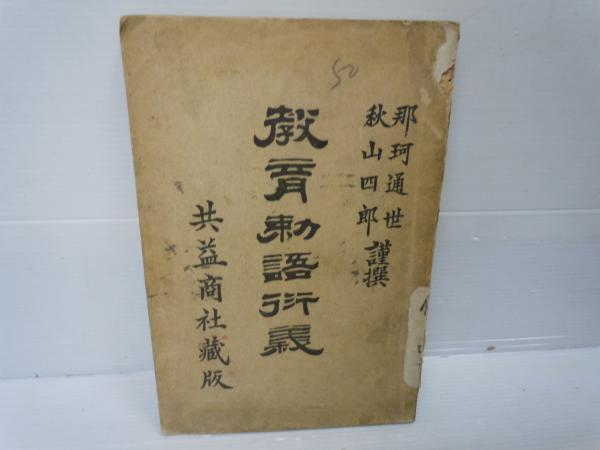 那珂通世
秋山四郎
謹撰
教育勅語衍義
共益商社藏版
50